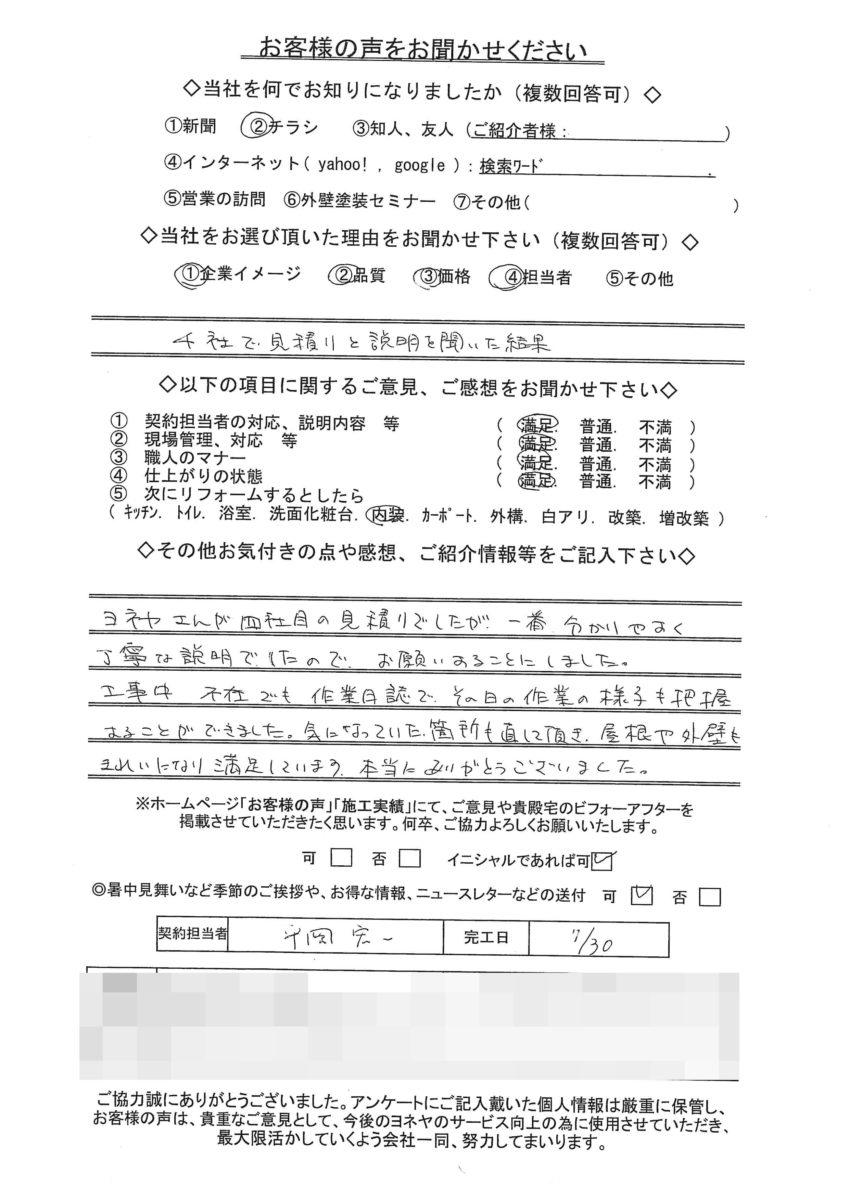 お客様の声をお聞かせください
◇当社を何でお知りになりましたか（複数回答可）◇
①新聞　②チラシ　③知人、友人（ご紹介者様：　　　　　）
④インターネット（ yahoo! , google ）：検索ﾜｰﾄﾞ　　　　　.
⑤営業の訪問　⑥外壁塗装セミナー　⑦その他（　　　　　）
◇当社をお選び頂いた理由をお聞かせ下さい（複数回答可）◇
①企業イメージ　②品質　③価格　④担当者　⑤その他
4社で見積りと説明を聞いた結果
◇以下の項目に関するご意見、ご感想をお聞かせ下さい◇
①　契約担当者の対応、説明内容　等　（　満足.　普通.　不満　）
②　現場管理、対応　等　（　満足.　普通.　不満　）
③　職人のマナー　（　満足.　普通.　不満　）
④　仕上がりの状態　（　満足.　普通.　不満　）
⑤　次にリフォームするとしたら
（ ｷｯﾁﾝ. ﾄｲﾚ. 浴室. 洗面化粧台. 内装. ｶｰﾎﾟｰﾄ. 外構. 白アリ. 改築. 増改築 ）
◇その他お気付きの点や感想、ご紹介情報等をご記入下さい◇
ヨネヤさんが四社目の見積りでしたが、一番分かりやすく
丁寧な説明でしたので、お願いすることにしました。
工事中 不在でも作業日誌で、その日の作業の様子も把握
することができました。気になっていた箇所も直して頂き、屋根や外壁も
きれいになり満足しています。本当にありがとうございました。
※ホームページ「お客様の声」「施工実績」にて、ご意見や貴殿宅のビフォーアフターを
掲載させていただきたく思います。何卒、ご協力よろしくお願いいたします。
可　□　否　□　イニシャルであれば可☑
◎暑中見舞いなど季節のご挨拶や、お得な情報、ニュースレターなどの送付　可　☑　否　□
契約担当者　平岡宏一　完工日　7/30
ご協力誠にありがとうございました。アンケートにご記入戴いた個人情報は厳重に保管し、
お客様の声は、貴重なご意見として、今後のヨネヤのサービス向上の為に使用させていただき、
最大限活かしていくよう会社一同、努力してまいります。